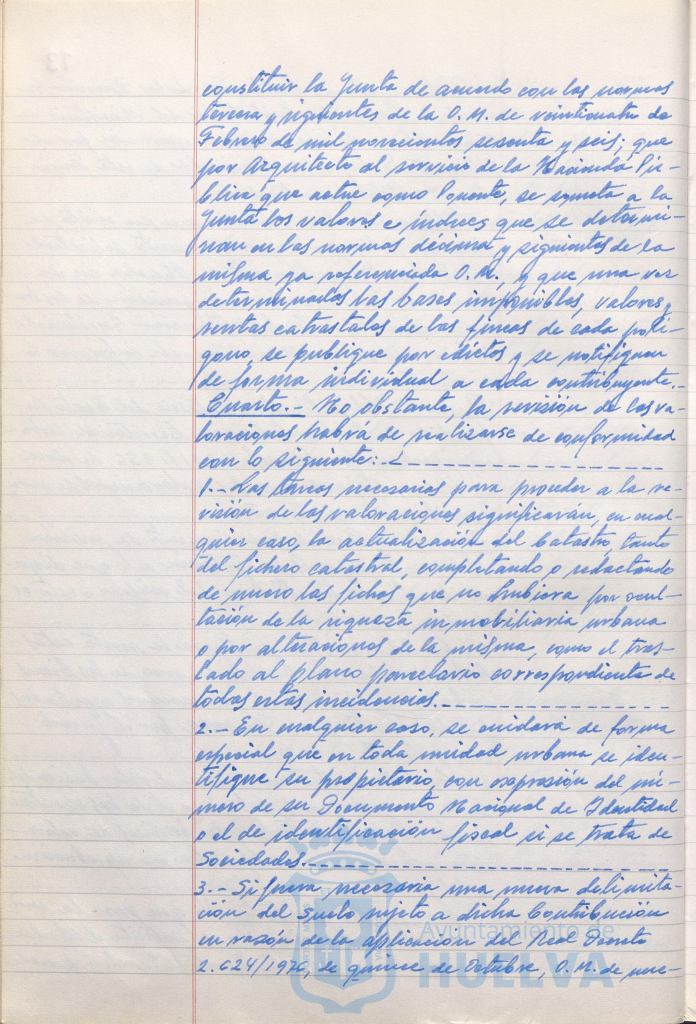 constituir la Junta de acuerdo con las normas
tercera y siguientes de la O.M. de veinticuatro de
Febrero de mil novecientos sesenta y seis; que
por Arquitecto al servicio de la Hacienda Pú-
blica que actue como Ponente, se someta a la
Junta los valores e índices que se determi-
nan en las normas décima y siguientes de la
misma ya referenciada O.M., y que una vez
determinados las bases imponibles, valores y
rentas catastrales de las fincas de cada polí-
gono, se publique por edictos y se notifiquen
de forma individual a cada contribuyente.-
Cuarto.- No obstante, la revisión de las va-
loraciones habrá de realizarse de conformidad
con lo siguiente:
1.- Las tareas necesarias para proceder a la re-
visión de las valoraciones significarán, en cual-
quier caso, la actualización del Catastro, tanto
del fichero catastral, completando o redactando
de nuevo las fichas que no hubiera por ocul-
tación de la riqueza inmobiliaria urbana
o por alteraciones de la misma, como el tras-
lado al plano parcelario correspondiente de
todas estas incidencias.
2.- En cualquier caso, se cuidará de forma
especial que en toda unidad urbana se iden-
tifique su propietario, con expresión del nú-
mero de su Documento Nacional de Identidad
o el de identificación fiscal si se trata de
Sociedades.
3.- Si fuera necesaria una nueva delimita-
ción del suelo sujeto a dicha Contribución
en razón de la aplicación del Real Decreto
2.624/1976, de quince de Octubre, O.M. de nue-
Ayuntamiento de
HUELVA